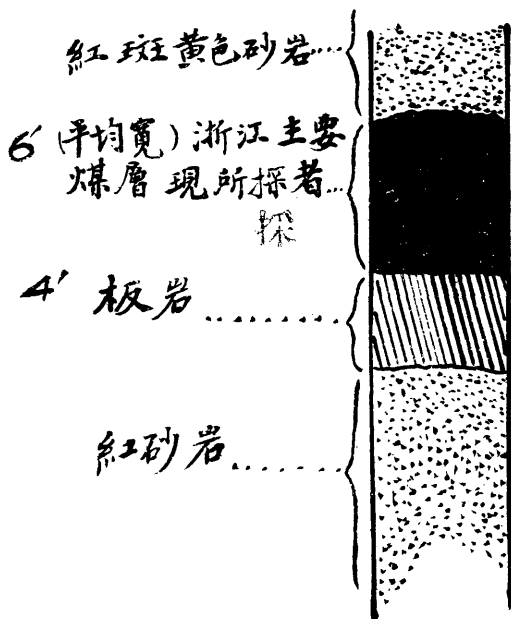 紅斑黄色砂岩
6' (平均寬) 浙江主要
煤層現所採者
採
4' 板岩
紅砂岩